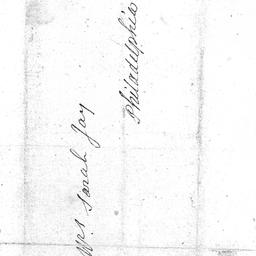 Mrs. Sarah Jay
Philadelphia